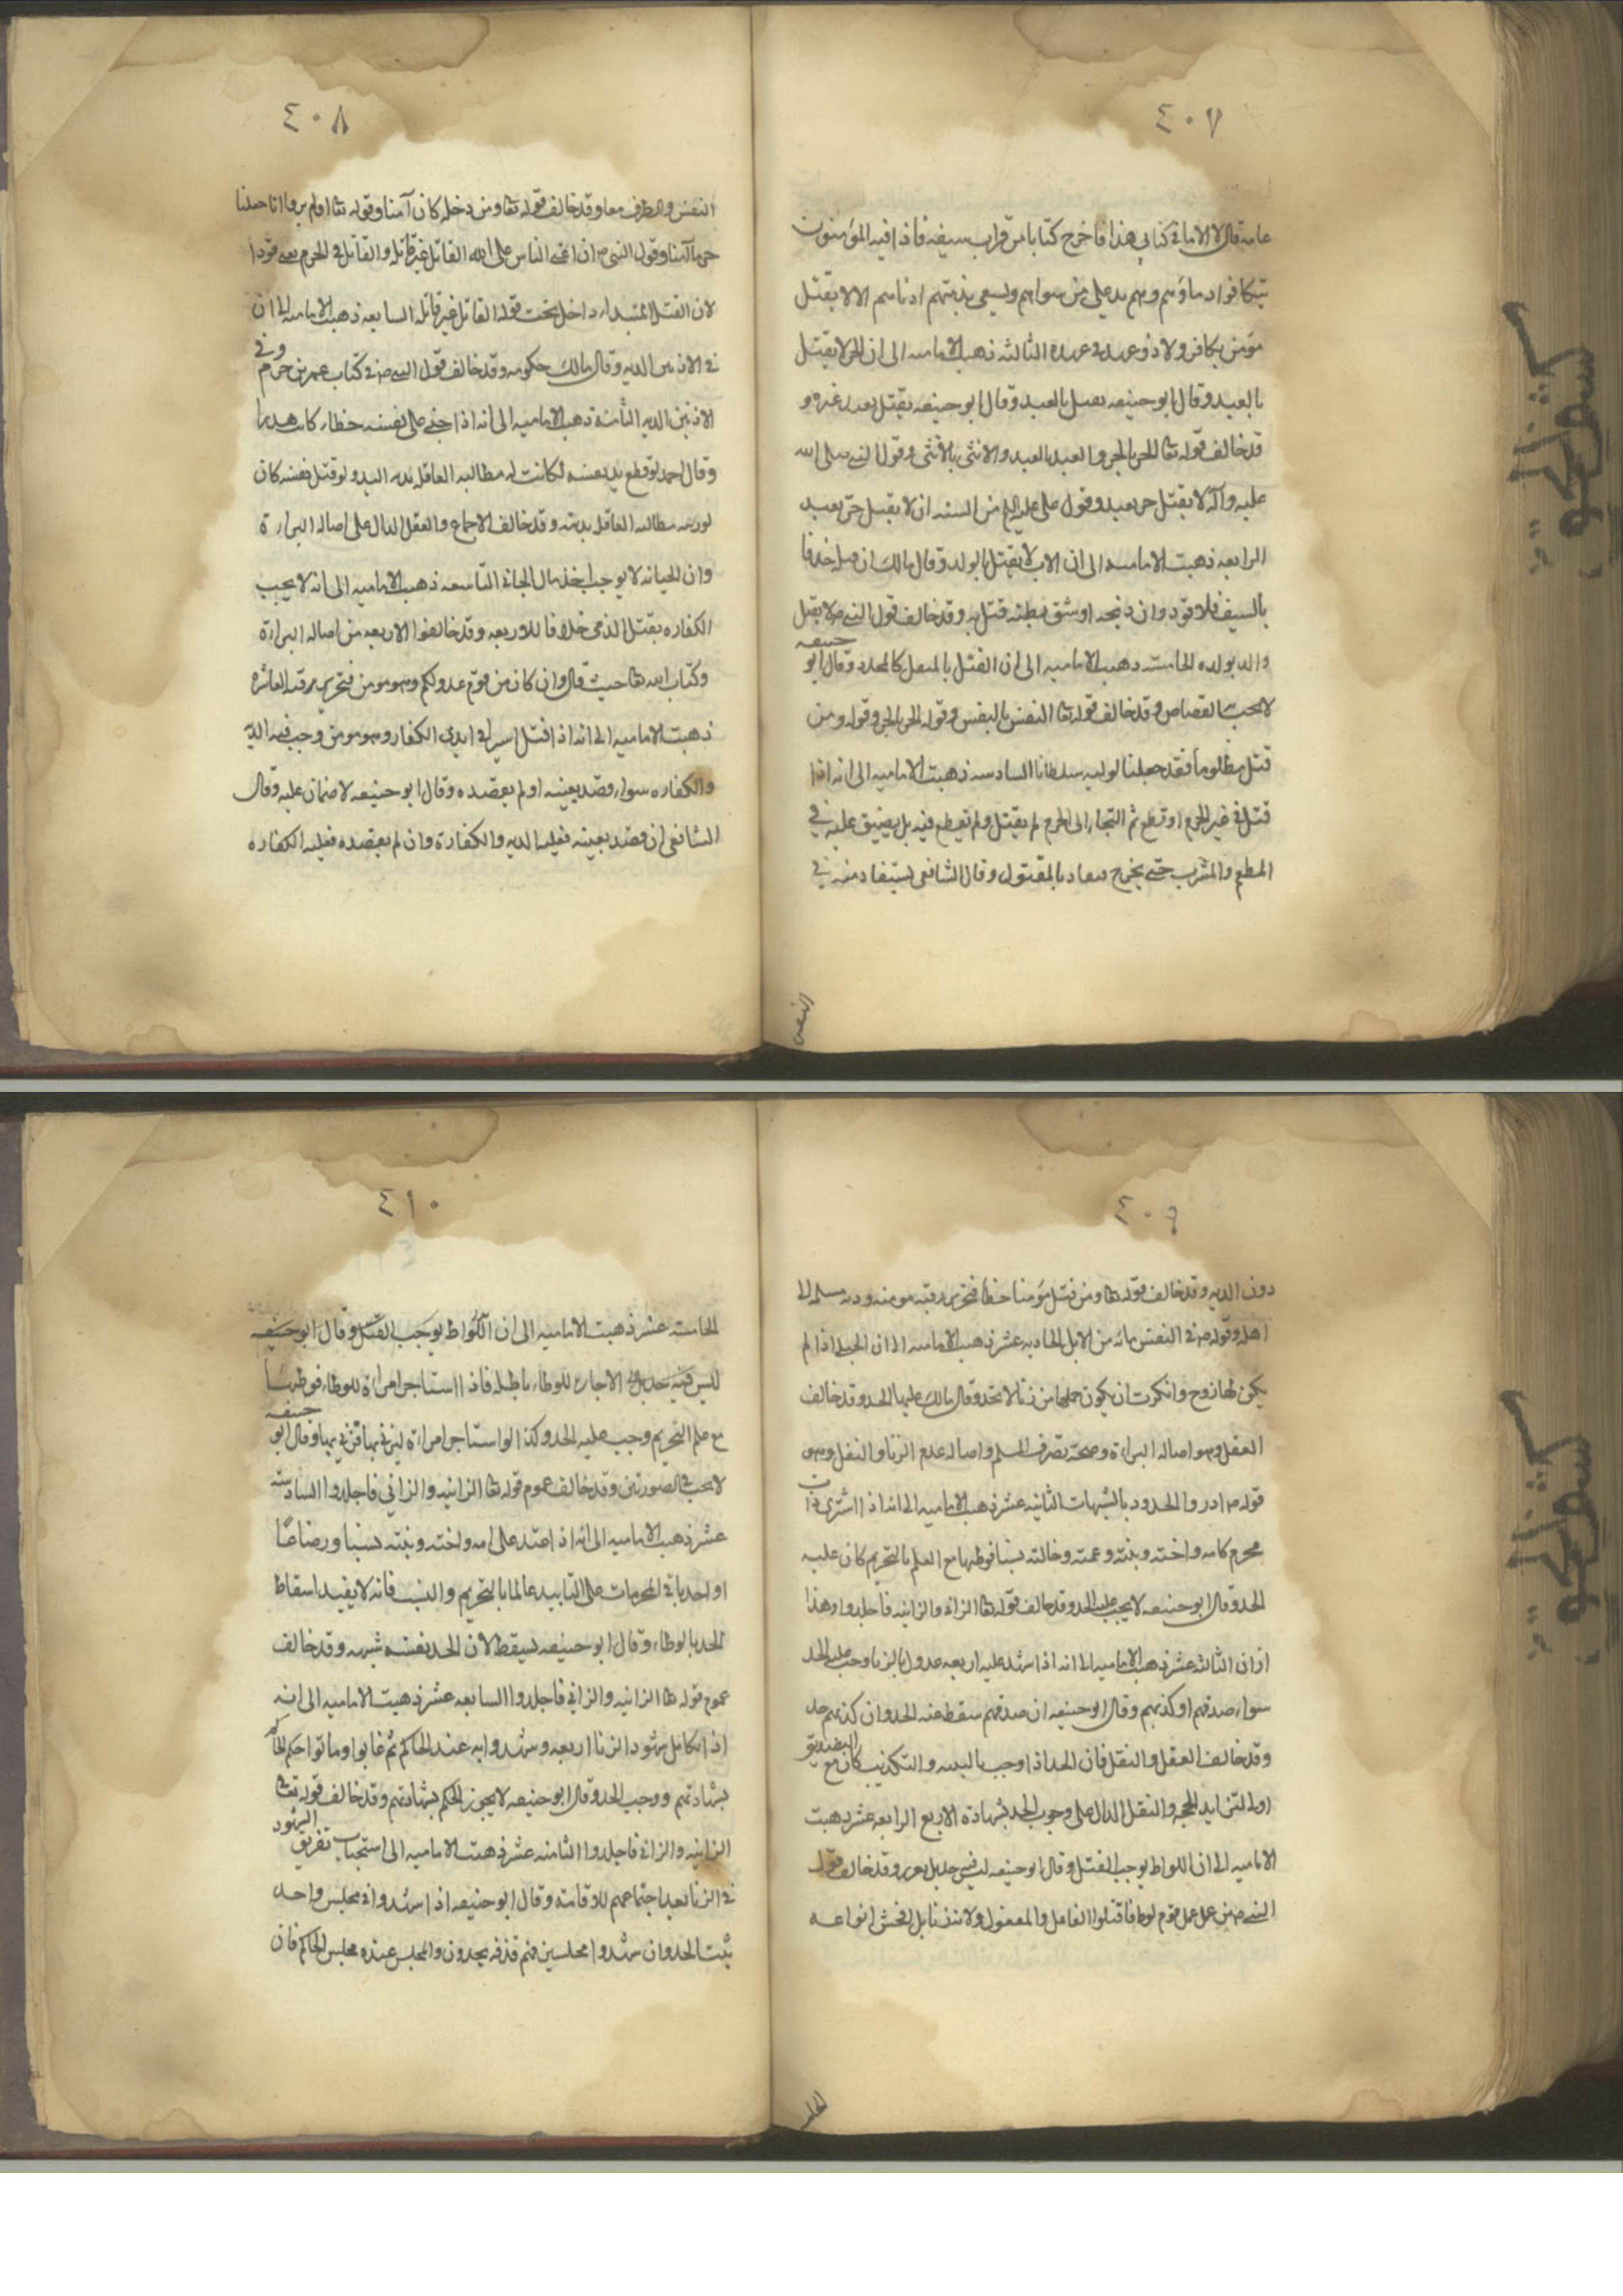 ٤٠٧
عامة قال لا الا ما في كتابي هذا فاخرج كتابا من قراب سيفه فاذا فيه المؤمنون
تتكافوا دماؤهم وهم يد على من سواهم ويسعى بذمتهم ادناهم الا لا يقتل
مؤمن بكافر ولا ذو عهد في عهده الثالثه ذهبت الاماميه الى ان الحر لا يقتل
بالعبد وقال ابو حنيفه يقتل بالعبد وقال ابو حنيفه يقتل بعبد غيره و
قد خالف قوله تعا الحر بالحر والعبد بالعبد والانثى بالانثى وقول النبي صلى الله
عليه وآله لا يقتل حر بعبد وقول علي عليه السلم من السنه ان لا يقتل حر بعبد
الرابعه ذهبت الاماميه الى ان الاب لا يقتل بالولد وقال مالك ان قتله حذفا
بالسيف فلا قود وان ذبحه او شق بطنه قتل به وقد خالف قول النبي ص لا يقتل
والد بولده الخامسه ذهبت الاماميه الى ان القتل بالمثقل كالمحدد وقال ابو حنيفه
لا يجب به القصاص وقد خالف قوله تعا النفس بالنفس وقوله الحر بالحر وقوله ومن
قتل مظلوما فقد جعلنا لوليه سلطانا السادسه ذهبت الاماميه الى انه اذا
قتل في غير الحرم او قطع ثم التجاء الى الحرم لم يقتل ولم يقطع فيه بل يضيق عليه في
المطعم والمشرب حتى يخرج فيقاد بالمقتول وقال الشافعي يستقاد منه في
النفس
٤٠٨
النفس والطرف معا وقد خالف قوله تعا ومن دخله كان آمنا وقوله تعا اولم يروا انا جعلنا
حرما آمنا وقول النبي ص ان اعتى الناس على الله القاتل غير قاتله والقاتل في الحرم يعني قودا
لان القتل المبتداء داخل تحت قوله القاتل غير قاتله السابعه ذهبت الاماميه الى ان
في الاذنين الديه وقال مالك حكومه وقد خالف قول النبي ص في كتاب عمر بن حزم وفي
الاذنين الديه الثامنة ذهبت الاماميه الى انه اذا جنى على نفسه خطاء كان هدرا
وقال احمد لو قطع يد نفسه لكانت له مطالبه العاقله بديه اليد ولو قتل نفسه كان
لورثته مطالبه العاقله بديته وقد خالف الاجماع والعقل الدال على اصاله البراءة
وان الجنايه لا يوجب اخذ مال الجناة التاسعه ذهبت الاماميه الى انه لا يجب
الكفاره بقتل الذمي خلافا للاربعه وقد خالفوا الاربعه من اصاله البراءة
وكتاب الله تعا حيث قال وان كان من قوم عدو لكم وهو مومن فتحرير رقبه العاشره
ذهبت الاماميه الى انه اذا قتل اسيرا في ايدي الكفار وهو مومن وجب فيه الديه
والكفاره سواء قصد بعينه او لم يقصده وقال ابو حنيفه لا ضمان عليه وقال
الشافعي ان قصد بعينه فعليه الديه والكفارة وان لم يقصده فعليه الكفاره
٤٠٩
دون الديه وقد خالف قوله تعا ومن قتل مؤمنا خطأ فتحرير رقبه مومنه وديه مسلمه الى
اهله وقوله ص في النفس مائه من الابل الحاديه عشر ذهبت الاماميه الى ان الحبلى اذا لم
يكن لها زوج وانكرت ان يكون حملها من زنا لا تحد وقال مالك عليها الحد وقد خالف
العقل وهو اصاله البراءة وصحة تصرف المسلم واصاله عدم الزنا والنقل وهو
قوله ص ادروا الحدود بالشبهات الثانيه عشر ذهبت الاماميه الى انه اذا اشترى ذات
محرم كامه واخته وبنته وعمته وخالته نسبا فوطيها مع العلم بالتحريم كان عليه
الحد وقال ابو حنيفه لا يجب عليه الحد وقد خالف قوله تعا الزاني والزانيه فاجلدوا وهذا
زان الثالثه عشر ذهبت الاماميه الى انه اذا شهد عليه اربعه عدول بالزنا وجب عليه الحد
سواء صدقهم او كذبهم وقال ابو حنيفه ان صدقهم سقط عنه الحد وان كذبهم حد
وقد خالف العقل والنقل فان الحد اذا وجب بالبينه والتكذيب كان مع التصديق
اولى لتزايد الحجه والنقل الدال على وجوب الحد بشهادة الاربع الرابعه عشر ذهبت
الاماميه الى ان اللواط يوجب القتل وقال ابو حنيفه ليس فيه حد بل يعزر وقد خالف قول
النبي ص من عمل عمل قوم لوط فاقتلوا الفاعل والمفعول ولانه زنا بل افحش انواعه
٤١٠
الخامسه عشر ذهبت الاماميه الى ان اللواط يوجب القتل وقال ابو حنيفه
ليس فيه حد بل الاجاره للوطاء باطله فاذا استاجر امراءة للوطاء فوطئها
مع علم التحريم وجب عليه الحد وكذا لو استاجر امراءة ليزني بها فزنى بها وقال ابو حنيفه
لا يجب في الصورتين وقد خالف عموم قوله تعا الزانيه والزاني فاجلدوا السادسه
عشر ذهبت الاماميه الى انه اذا عقد على امه واخته وبنته نسبا ورضاعا
او احد باقي المحرمات على التابيد عالما بالتحريم والنسب فانه لا يفيد اسقاط
الحد بالوطاء وقال ابو حنيفه يسقط لان الحد نفسه شبهه وقد خالف
عموم قوله تعا الزانيه والزاني فاجلدوا السابعه عشر ذهبت الاماميه الى انه
اذا تكامل شهود الزنا اربعه وشهدوا به عند الحاكم ثم غابوا او ماتوا حكم الحاكم
بشهادتهم ووجب الحد وقال ابو حنيفه لا يجوز الحكم بشهادتهم وقد خالف قوله تعا
الزانيه والزاني فاجلدوا الثامنه عشر ذهبت الاماميه الى استحباب تفريق الشهود
في الزنا بعد اجتماعهم للاقامه وقال ابو حنيفه اذا شهدوا في مجلس واحد
يثبت الحد وان شهدوا مجلسين فهم قذفه يحدون والمجلس عنده مجلس الحاكم فان